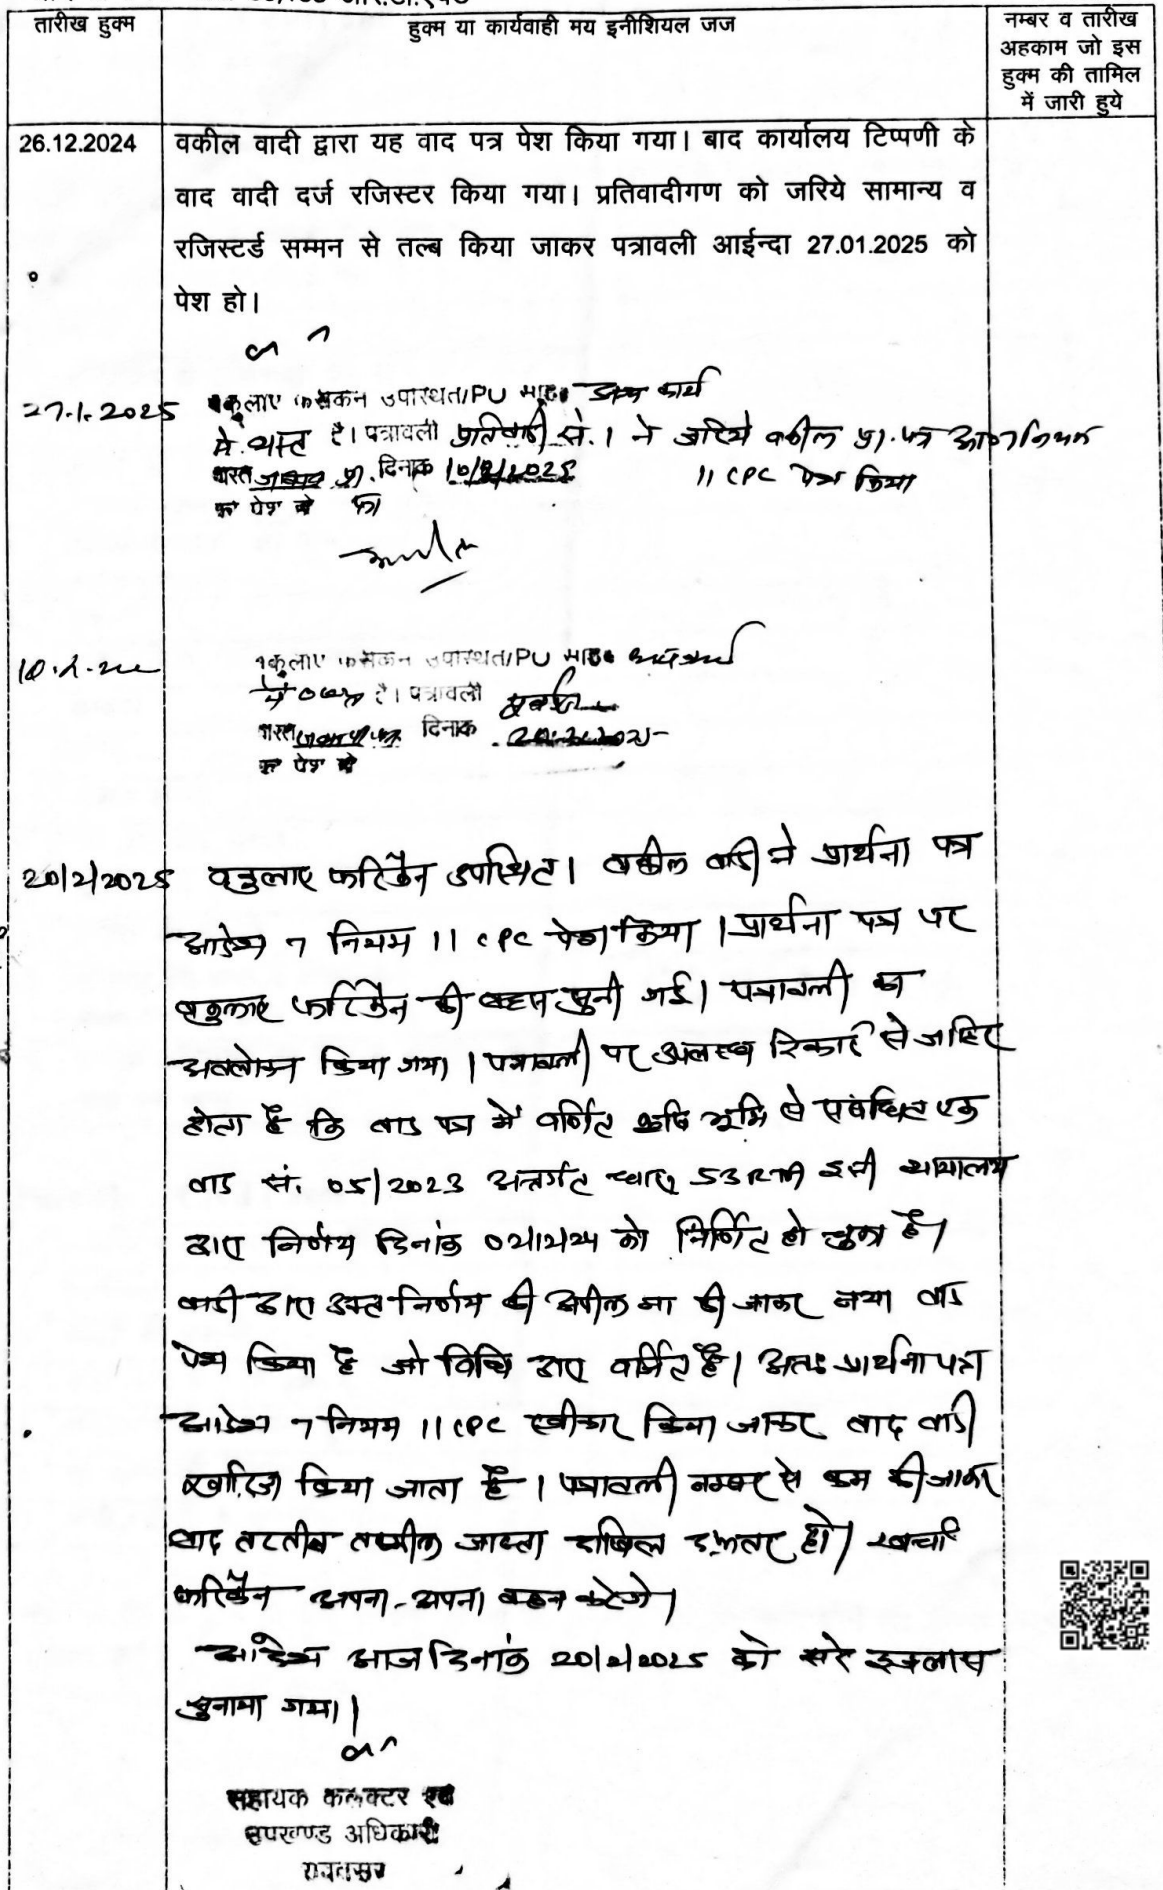 तारीख हुक्म
हुक्म या कार्यवाही मय इनीशियल जज
नम्बर व तारीख
अहकाम जो इस
हुक्म की तामिल
में जारी हुये
26.12.2024
वकील वादी द्वारा यह वाद पत्र पेश किया गया। बाद कार्यालय टिप्पणी के
वाद वादी दर्ज रजिस्टर किया गया। प्रतिवादीगण को जरिये सामान्य व
रजिस्टर्ड सम्मन से तल्ब किया जाकर पत्रावली आईन्दा 27.01.2025 को
पेश हो।
27.1.2025
उपस्थित/PU कार्य
में व्यस्त है। पत्रावली प्रतिवादी सं. 1 ने जरिये वकील प्रा. पत्र
दिनांक 10/2/2025
11 CPC पेश किया
का पेश हो
उपस्थित/PU
में है। पत्रावली
दिनांक 20.2.2025
का पेश हो
20/2/2025
वकुलाए फरिकैन उपस्थित। वकील वादी ने प्रार्थना पत्र
आदेश 7 नियम 11 CPC पेश किया। प्रार्थना पत्र पर
वकुलाए फरिकैन की बहस सुनी गई। पत्रावली का
अवलोकन किया गया। पत्रावली पर उपलब्ध रिकार्ड से जाहिर
होता है कि वाद पत्र में वर्णित कृषि भूमि से संबंधित एक
वाद सं. 05/2023 अन्तर्गत धारा 53 RTA इसी न्यायालय
द्वारा निर्णय दिनांक को निर्णित हो चुका है।
वादी द्वारा उक्त निर्णय की अपील ना की जाकर नया वाद
पेश किया है जो विधि द्वारा वर्जित है। अतः प्रार्थना पत्र
आदेश 7 नियम 11 CPC स्वीकार किया जाकर वाद वादी
खारिज किया जाता है। पत्रावली नम्बर से कम की जाकर
बाद तरतीब तकमील जाब्ता दाखिल दफ्तर हो। खर्चा
फरिकैन अपना-अपना वहन करेंगे।
आदेश आज दिनांक 20/2/2025 को सरे इजलास
सुनाया गया।
सहायक कलक्टर एवं
उपखण्ड अधिकारी
रावतसर